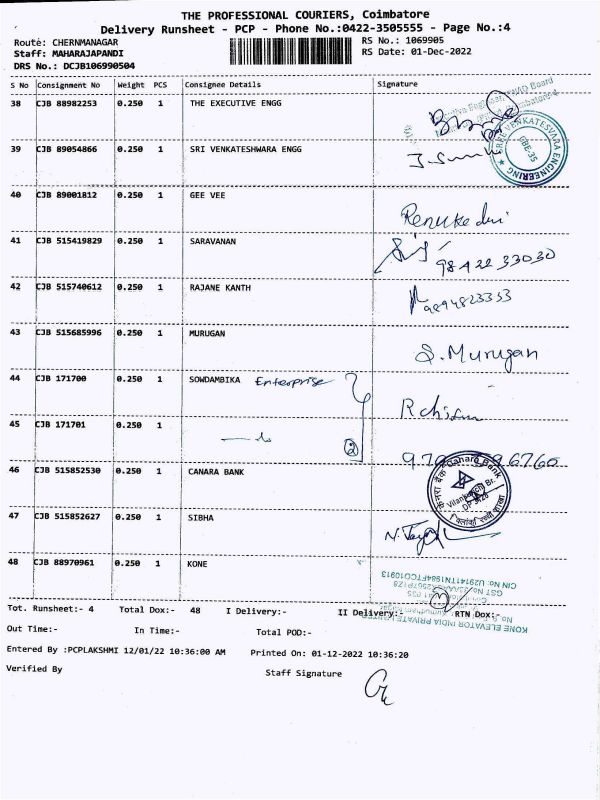 THE PROFESSIONAL COURIERS, Coimbatore
Delivery Runsheet - PCP - Phone No.:0422-3505555 - Page No.:4
Route: CHERNMANAGAR
RS No.: 1069905
Staff: MAHARAJAPANDI
RS Date: 01-Dec-2022
DRS No.: DCJB106990504
S No Consignment No Weight PCS Consignee Details Signature
38 CJB 88982253 0.250 1 THE EXECUTIVE ENGG
39 CJB 89054866 0.250 1 SRI VENKATESHWARA ENGG
SREE VENKATESVARA ENGINEERING
CBE-35
40 CJB 89001812 0.250 1 GEE VEE
Renuke dui
41 CJB 515419829 0.250 1 SARAVANAN
98422 33030
42 CJB 515740612 0.250 1 RAJANE KANTH
9894823353
43 CJB 515685996 0.250 1 MURUGAN
S. Murugan
44 CJB 171700 0.250 1 SOWDAMBIKA Enterprise
45 CJB 171701 0.250 1
2
46 CJB 515852530 0.250 1 CANARA BANK
Canara Bank
केनरा बैंक
47 CJB 515852627 0.250 1 SIBHA
48 CJB 88970961 0.250 1 KONE
CIN No: U29141TN1984FTC010913
KONE ELEVATOR INDIA PRIVATE LIMITED
Tot. Runsheet:- 4 Total Dox:- 48 I Delivery:- II Delivery:- RTN Dox:-
Out Time:- In Time:- Total POD:-
Entered By :PCPLAKSHMI 12/01/22 10:36:00 AM Printed On: 01-12-2022 10:36:20
Verified By Staff Signature